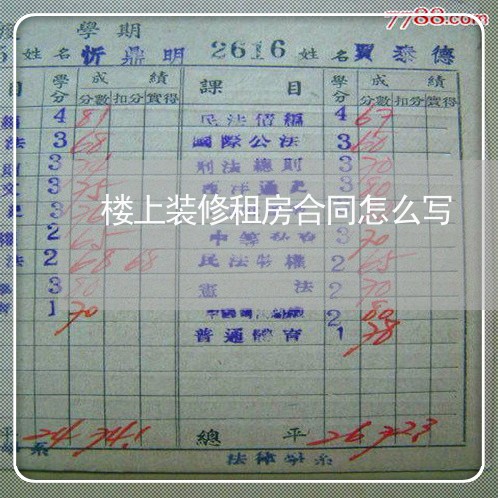 7788.com
學期
姓名 忻鼎明 2616 姓名 賈泰德
目 學分 成績 課目 學分 成績
分數 扣分 實得 分數 扣分 實得
4 81 民法債編 4 67
法 3 68 國際公法 3 60
3 刑法總則 3 70
3 75 西洋通史 3 80
楼上装修租房合同怎么写
2 65 3 70
法 2 68 68 民法物權 2 65
3 80 憲法 2 70
1 70 2 80
普通體育 1 78
平 24 74.1 總平 26 72.3
系 法律學系